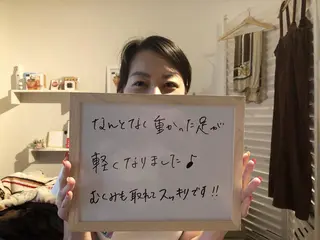 なんとなく重かった足が
軽くなりました♪
むくみも取れてスッキリです!!